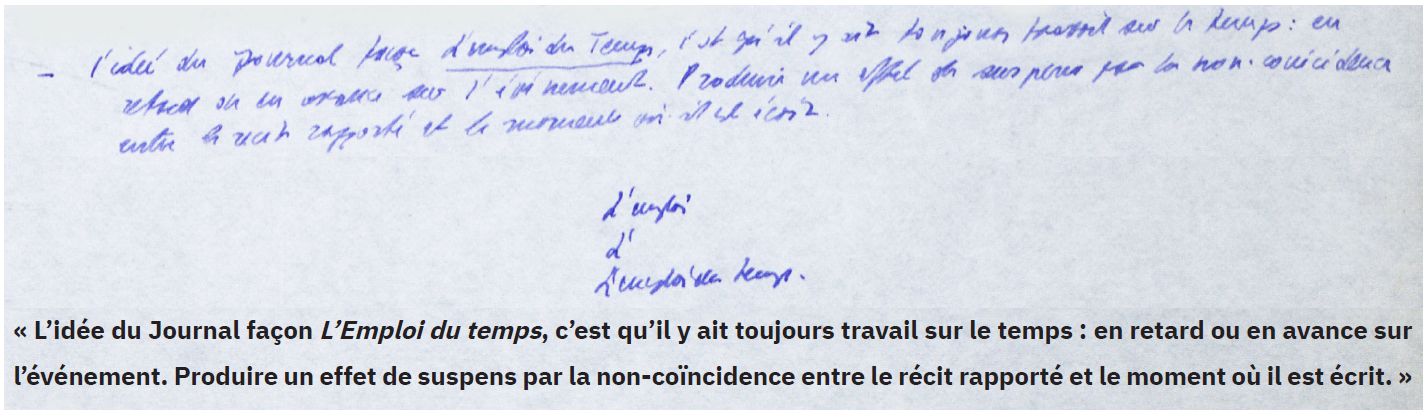 – l'idée du Journal façon L'emploi du Temps, c'est qu'il y ait toujours travail sur le temps : en
retard ou en avance sur l'événement. Produire un effet de suspens par la non-coïncidence
entre le récit rapporté et le moment où il est écrit.
L'emploi
L'
L'emploi du temps.
« L’idée du Journal façon L’Emploi du temps, c’est qu’il y ait toujours travail sur le temps : en retard ou en avance sur
l’événement. Produire un effet de suspens par la non-coïncidence entre le récit rapporté et le moment où il est écrit. »